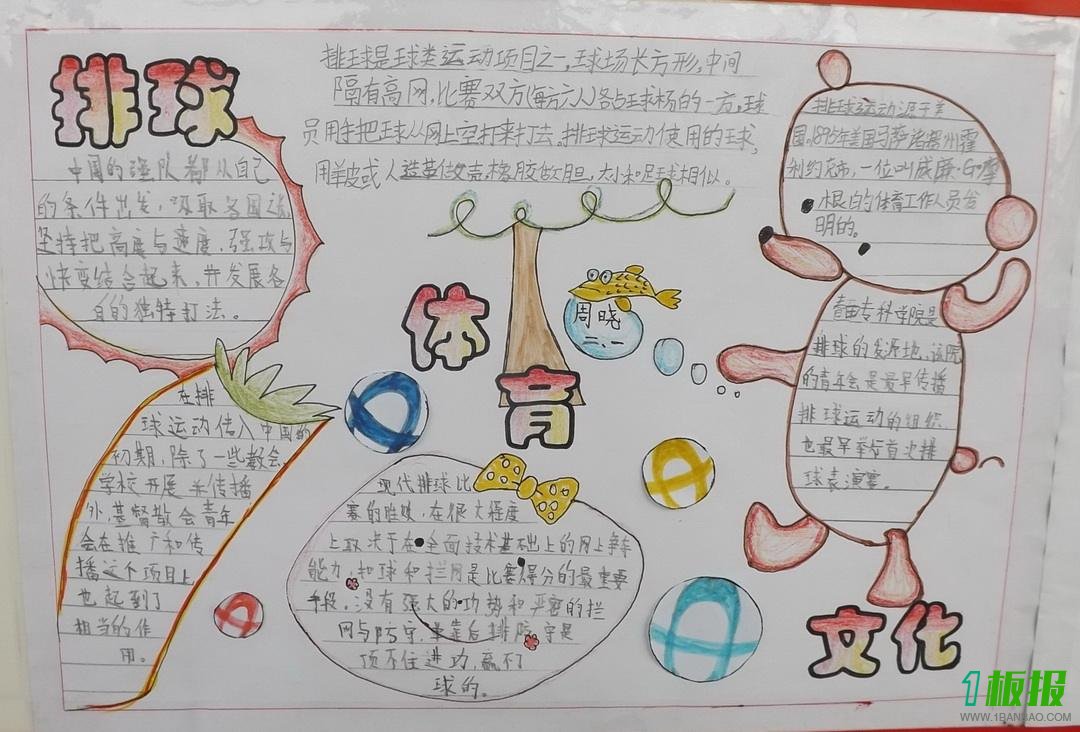 排球
中国的强队都从自己
的条件出发,吸取各国
坚持把高度与速度,强攻与
快变结合起来,并发展各
自的独特打法。
排球是球类运动项目之一,球场长方形,中间
隔有高网,比赛双方(每方六人)各占球场的一方,球
员用手把球从网上空打来打去。排球运动使用的球,
用羊皮或人造革做壳,橡胶做胆,大小和足球相似。
排球运动源于美
国。1895年美国马萨诸塞州霍
利约克市,一位叫威廉·G·摩
根的体育工作人员发
明的。
体育
周晓
二、一
青年专科学院是
排球的发源地,该院
的青年会是最早传播
排球运动的组织
也最早举行首次排
球表演赛。
在排
球运动传入中国的
初期,除了一些教会
学校开展并传播
外,基督教会青年
会在推广和传
播这个项目上
也起到了
相当的作
用。
现代排球比
赛的胜败,在很大程度
上取决于在全面技术基础上的网上争夺
能力,扣球和拦网是比赛得分的最重要
手段,没有强大的攻势和严密的拦
网与防守,单靠后排防守是
顶不住进攻,赢不了
球的。
文化
1板报
WWW.1BANBAO.COM